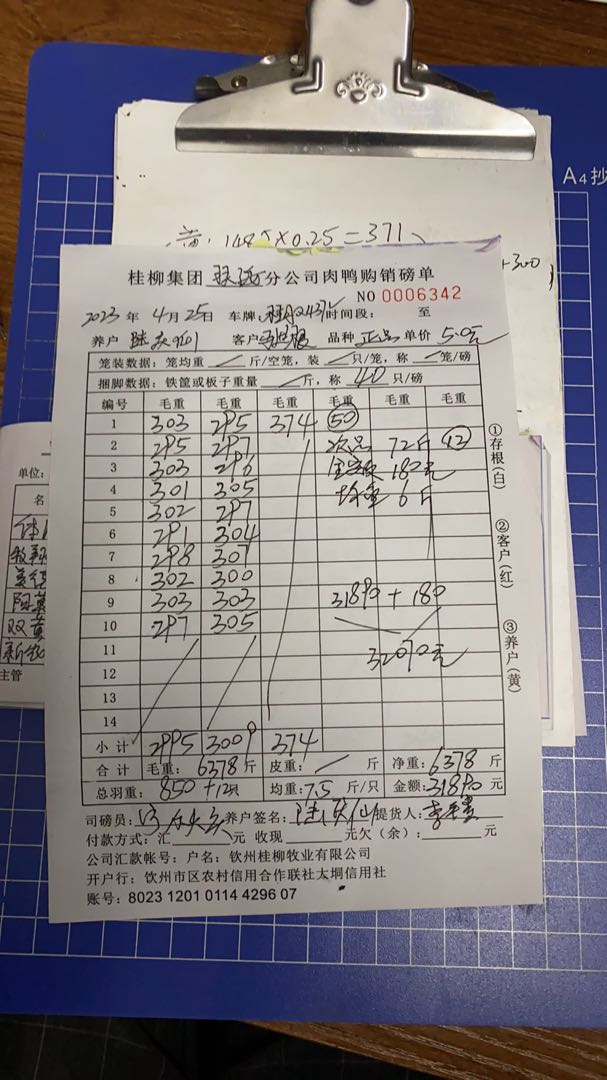 148 × 0.25 = 371
+300
A4抄
桂柳集团 分公司肉鸭购销磅单
NO 0006342
2023 年 4 月 25 日 车牌 时间段： 至
养户 客户 品种 正品 单价 5.0元
笼装数据：笼均重 / 斤/空笼，装 / 只/笼，称 / 笼/磅
捆脚数据：铁筐或板子重量 / 斤，称 40 只/磅
编号 毛重 毛重 毛重 毛重 毛重 毛重
1 303 295 374 50
2 295 297 次品 72斤 12
3 303 296 180元
4 301 305 均重 6斤
5 302 297
6 291 304
7 298 307
8 302 300
9 303 303 31890 + 180
10 297 305
11 32070元
12
13
14
小计 2995 3009 374
合计 毛重：6378 斤 皮重： / 斤 净重：6378 斤
总羽重：850+12只 均重：7.5 斤/只 金额：31890 元
司磅员： 养户签名： 提货人：
付款方式：汇 元 收现 元欠（余）： 元
公司汇款帐号：户名：钦州桂柳牧业有限公司
开户行：钦州市区农村信用合作联社大垌信用社
账号：8023 1201 0114 4296 07
①存根（白）
②客户（红）
③养户（黄）
单位：
名
双黄
主管